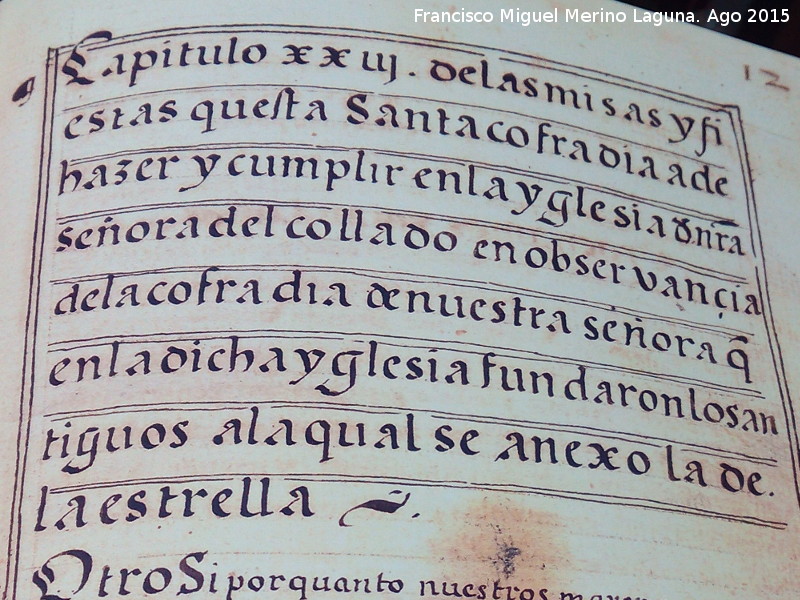 Francisco Miguel Merino Laguna. Ago 2015
12
Capitulo xxiij. de las misas y fi
estas questa Santa cofradia a de
hazer y cumplir en la yglesia d nrã
señora del collado en obseruançia
de la cofradia de nuestra señora q̃
en la dicha yglesia fundaron los an
tiguos a la qual se anexo la de.
la estrella .
Otro Si por quanto nuestros